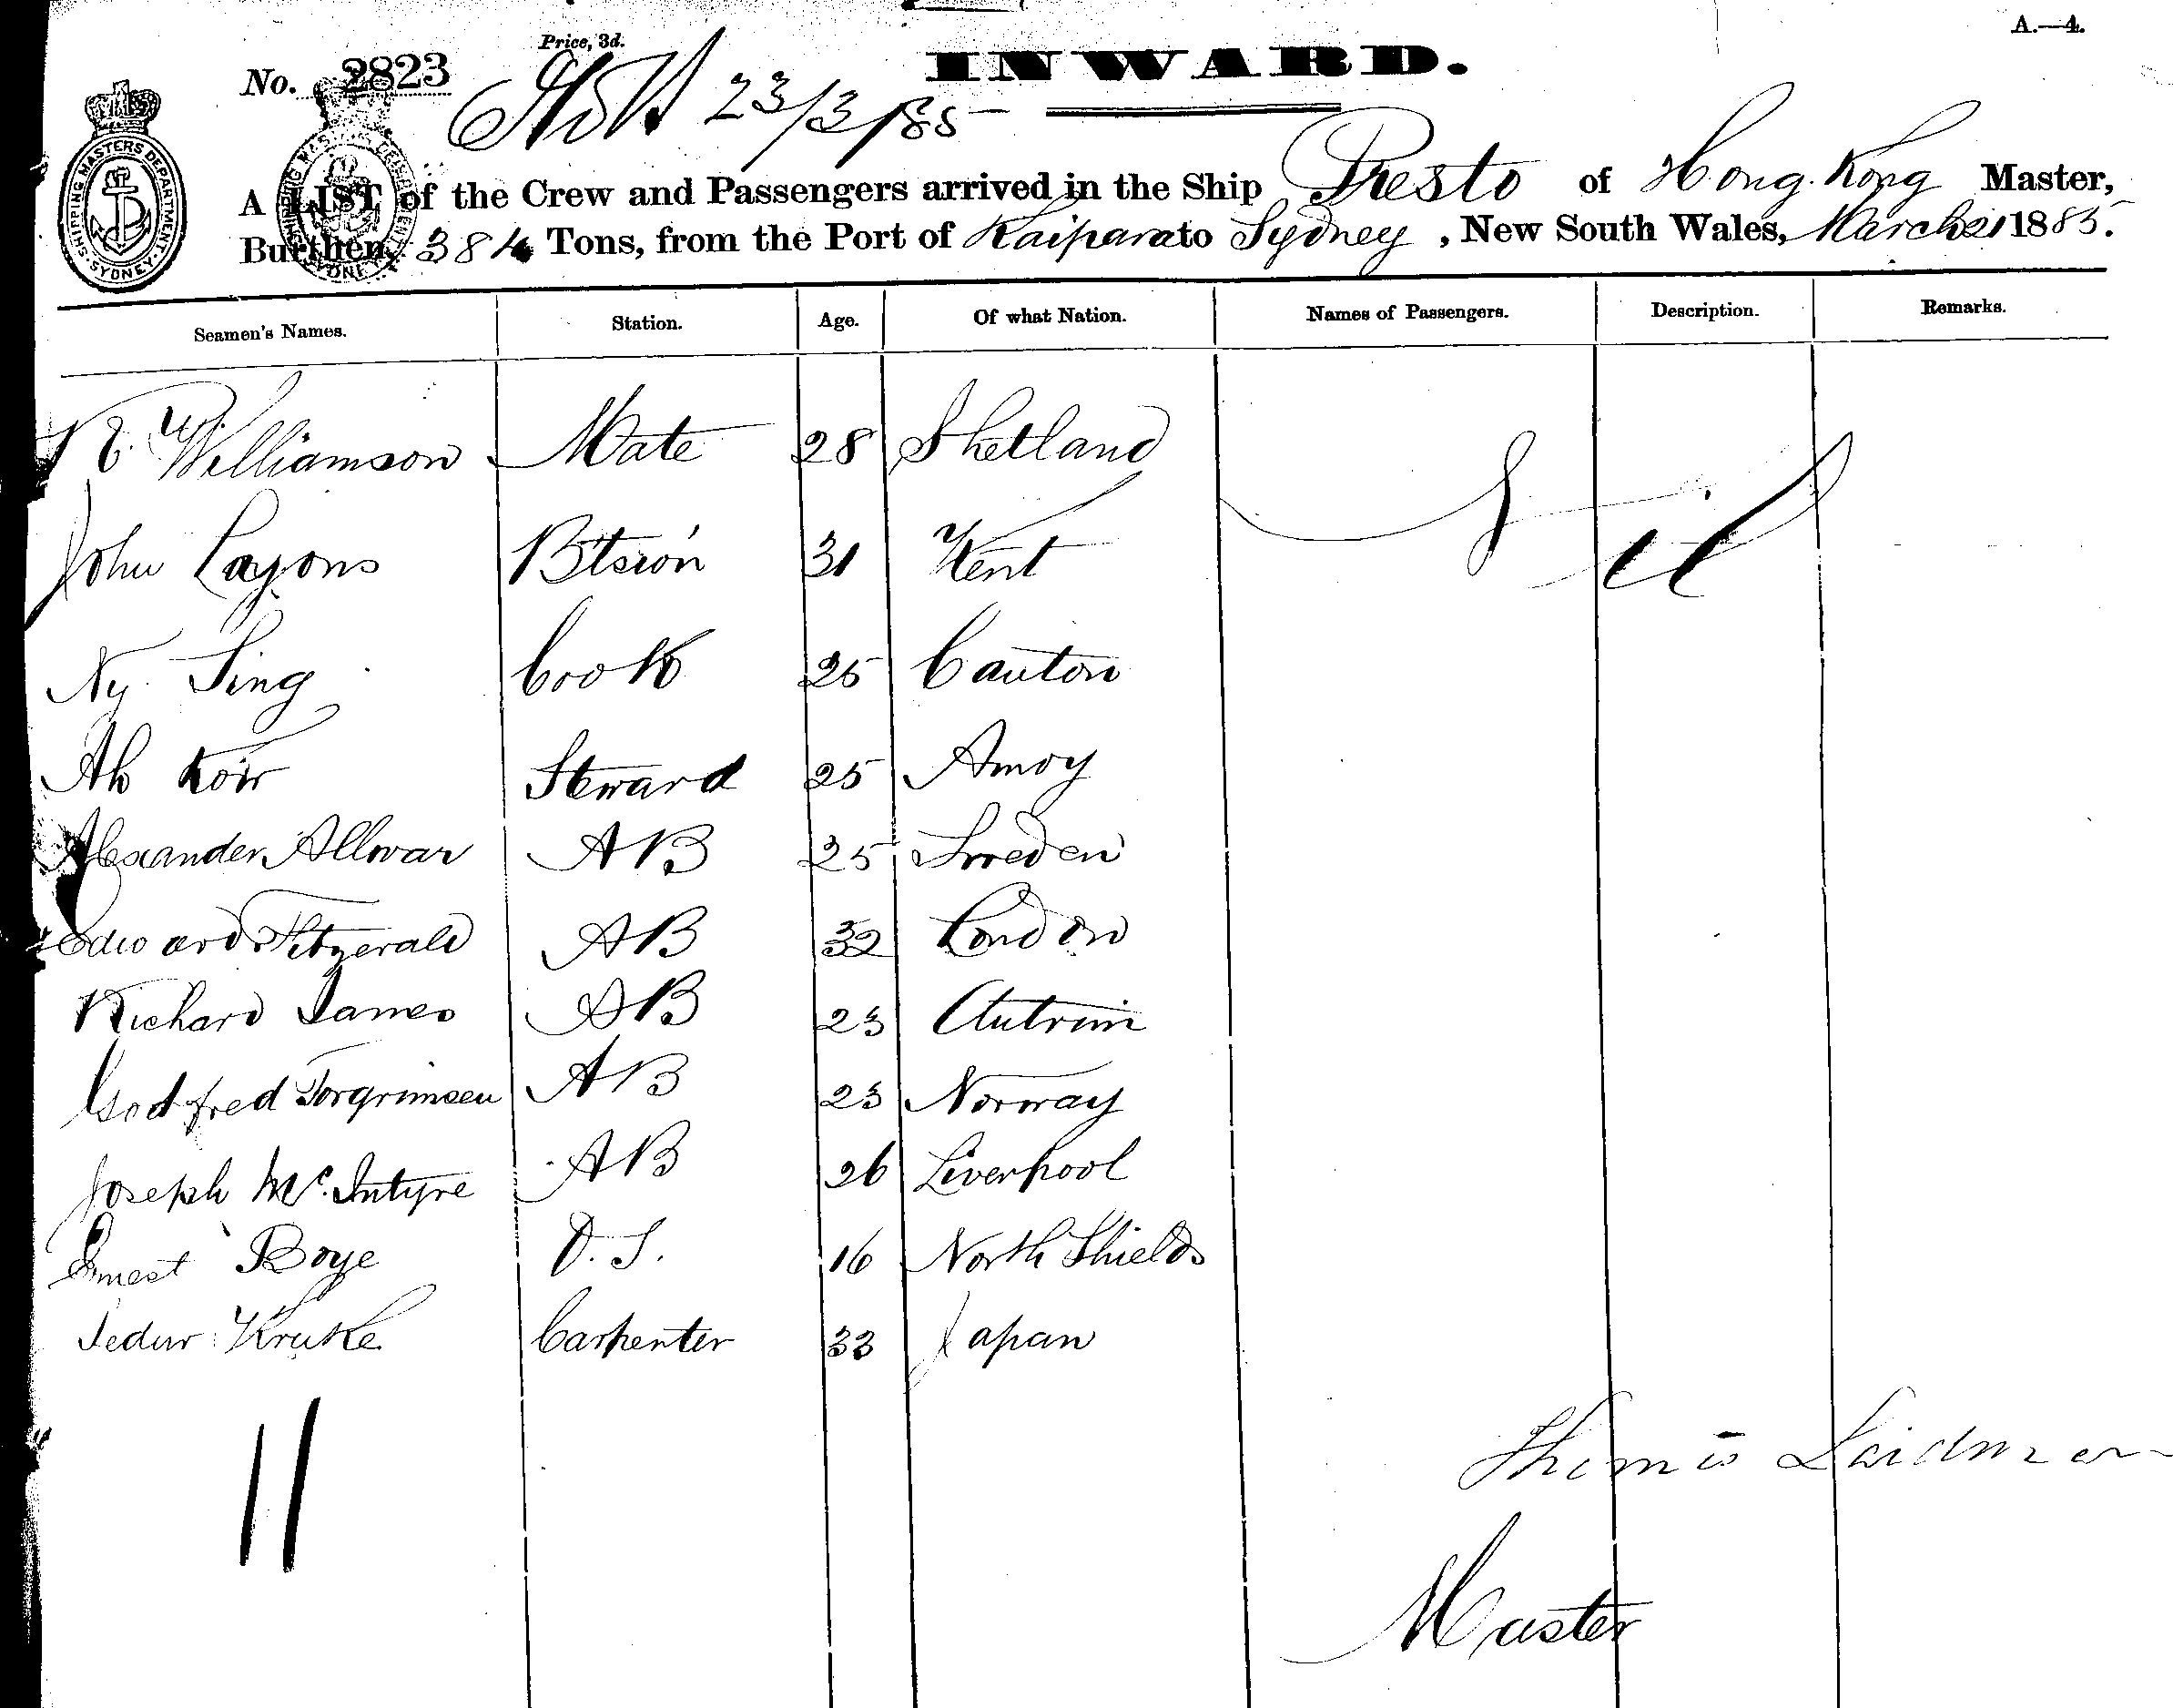 A.—4.
Price, 3d.
INWARD.
No. 2823
23/3/85
SHIPPING MASTERS DEPARTMENT SYDNEY
A LIST of the Crew and Passengers arrived in the Ship Presto of Hong Kong Master,
Burthen, 384 Tons, from the Port of Kaipara to Sydney, New South Wales, March 21 1885.
Seamen's Names. Station. Age. Of what Nation. Names of Passengers. Description. Remarks.
Williamson Mate 28 Shetland Nil
John Layons Btswn 31 Kent
Ny Sing Cook 25 Canton
Ah Steward 25 Amoy
Alexander Allwar AB 25 Sweden
Edward Fitzerald AB 32 London
Richard James AB 23 Antrim
Godfred Torgrimsen AB 23 Norway
Joseph McIntyre AB 26 Liverpool
Ernest Boye O.S. 16 North Shields
Kruke Carpenter 33 Japan
11
Thomas Laidman
Master